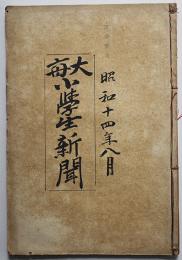 昭和十四年八月
大毎
小學生新聞